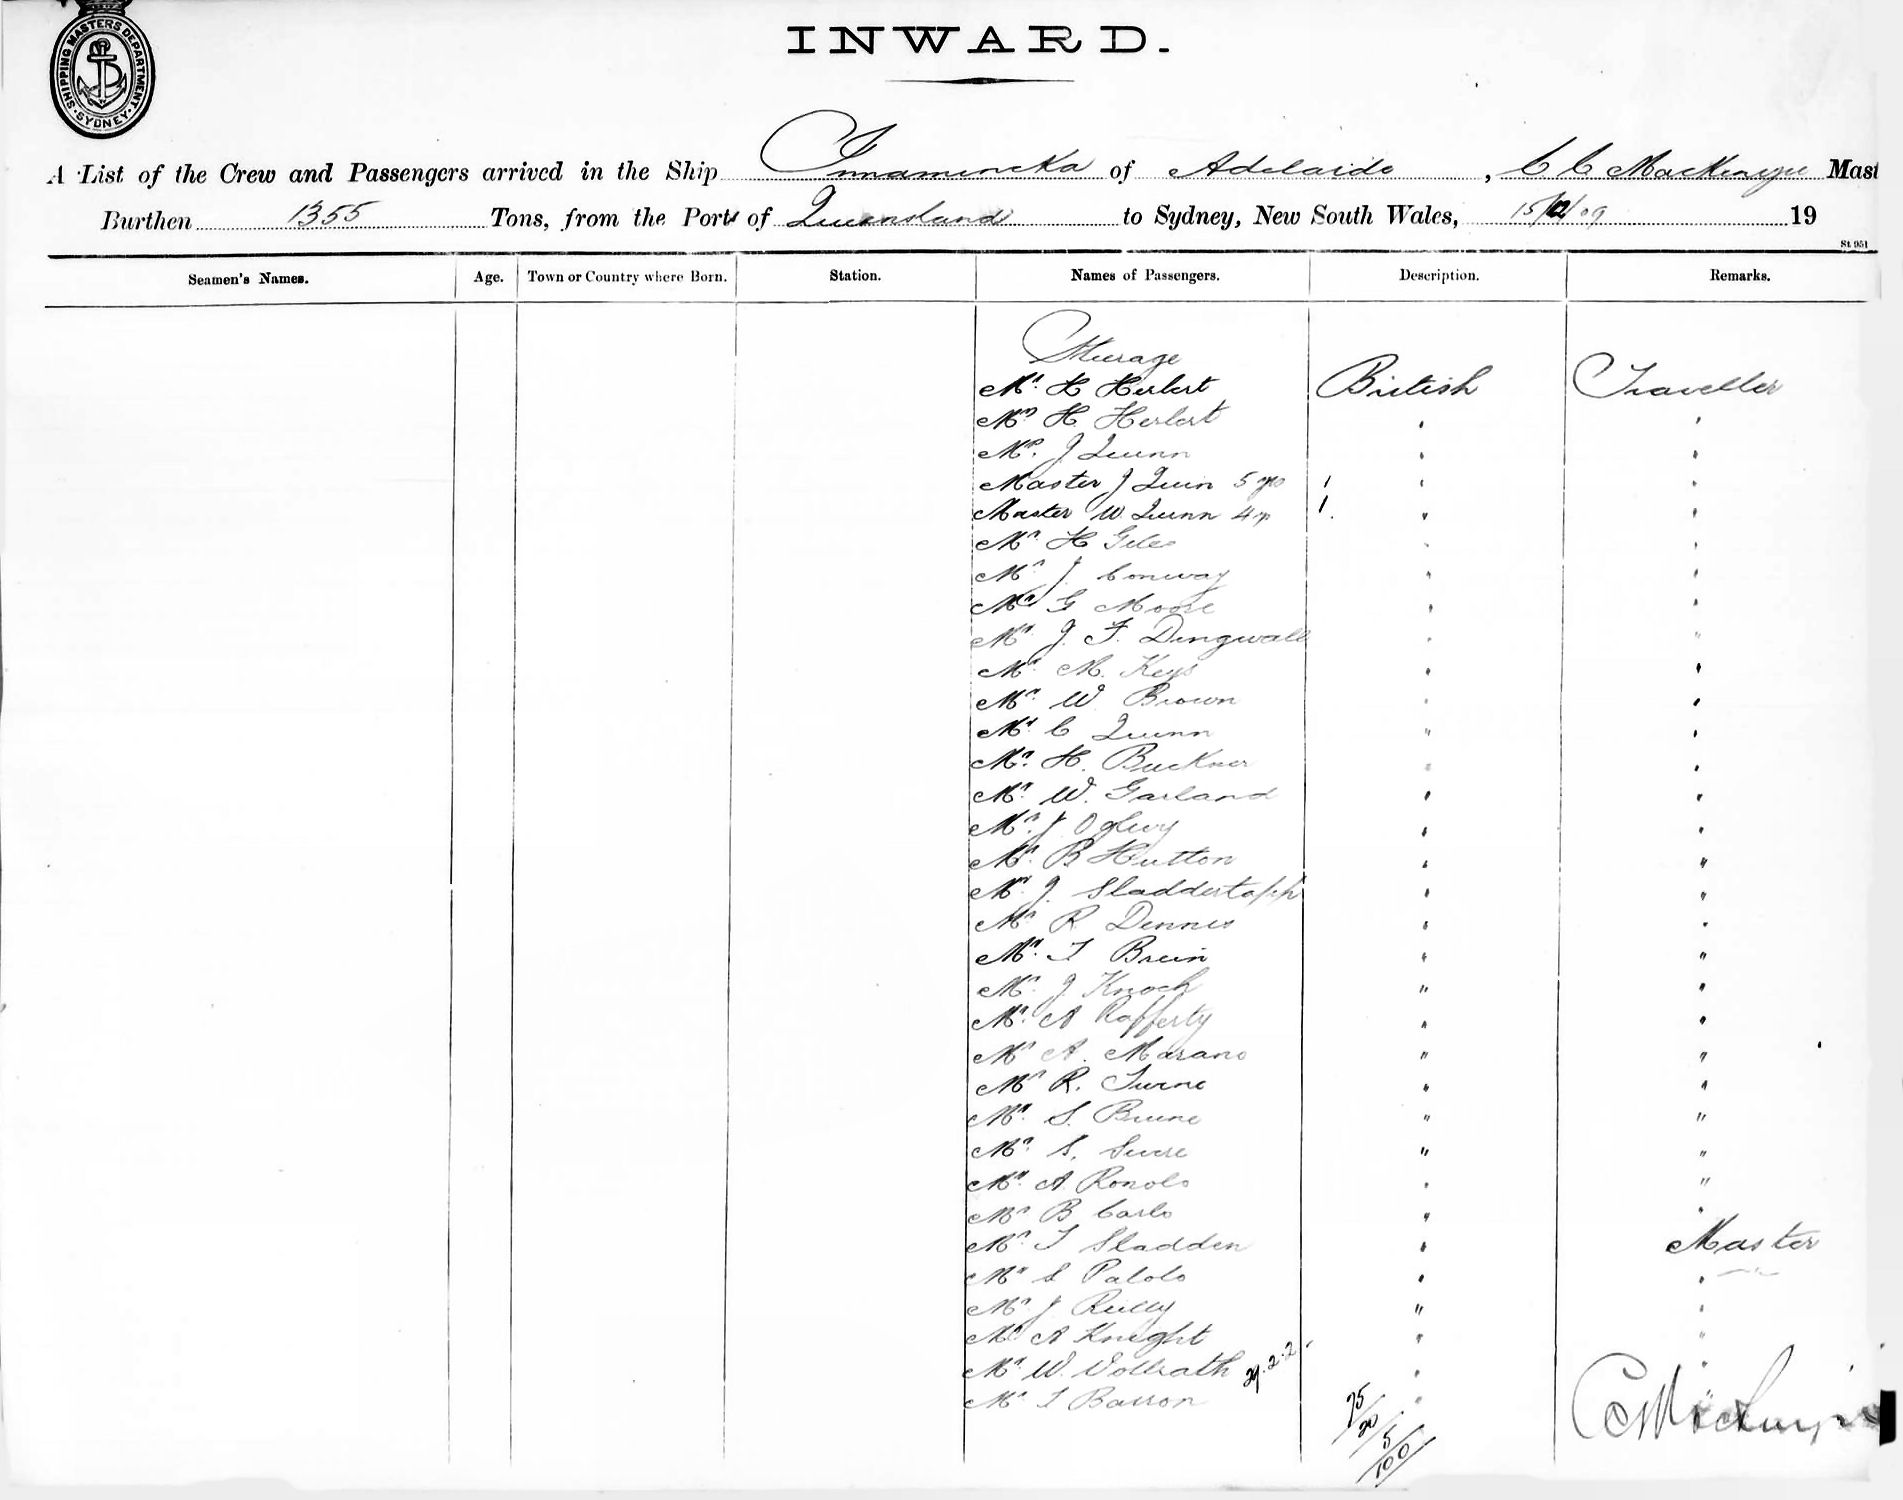 SHIPPING MASTERS DEPARTMENT SYDNEY
INWARD.
A List of the Crew and Passengers arrived in the Ship Innamincka of Adelaide, C C MacKenzie Mast
Burthen 1355 Tons, from the Port of Queensland to Sydney, New South Wales, 15/12/09 19
St. 951
Seamen's Names. Age. Town or Country where Born. Station. Names of Passengers. Description. Remarks.
Steerage
Mr. H Herbert British Traveller
Mrs H Herbert " "
Mrs. J Quinn " "
Master J Quin 5 yrs 1 " "
Master W Quinn 4 y 1. " "
Mr. H Giles " "
Mr J. Conway " "
Mr G Moore " "
Mr. J. F. Dingwall " "
Mr. M. Keys " "
Mr. W. Brown " "
Mr. C Quinn " "
Mr. H. Buckner " "
Mr. W. Garland " "
Mr. J Ogilvy " "
Mr. B Hutton " "
Mr. J. Sladdertoph " "
Mr. R Dennis " "
Mr. T Brein " "
Mr. J Knoch " "
Mr. A Rafferty " "
Mr A. Marano " "
Mr R. Turne " "
Mr. S. Brune " "
Mr. S. " "
Mr. A Ronolo " "
Mr B Carlo " "
Mr. T Sladden " Master
Mr S Palolo " "
Mr. J Reilly " "
Mr A Knight " "
Mr. W. Vollrath 29.2.2. " "
Mr. T Barron "
25/20/5/100/